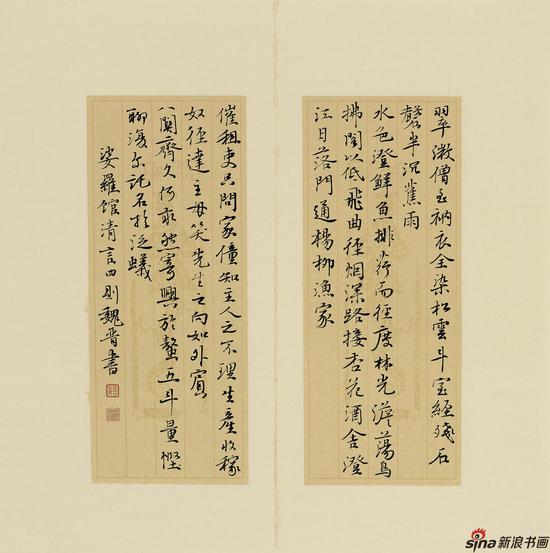 翠微僧至衲衣全染松雲斗室經殘石
磬半沉蕉雨
水色澄鮮魚排荇而徑度林光澹蕩鳥
拂閣以低飛曲徑烟深路接杏花酒舍澄
江日落門通楊柳漁家
催租吏只問家僮知主人之不理生產收稼
奴徑達主母笑先生之向如外賓
八関齋久何敢然寄興於螯五斗量慳
聊復尔託名於泛蟻
娑羅館清言四則魏晋書
sina新浪书画